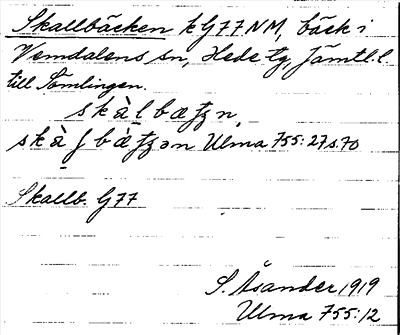 Skallbäcken k G77NM, bäck i
Vemdalens sn, Hede tg, Jämtl. l.
till Tömlingen.
Ulma 755:27 s.70
Skallb. G77
S. Åsander 1919
Ulma 755:12